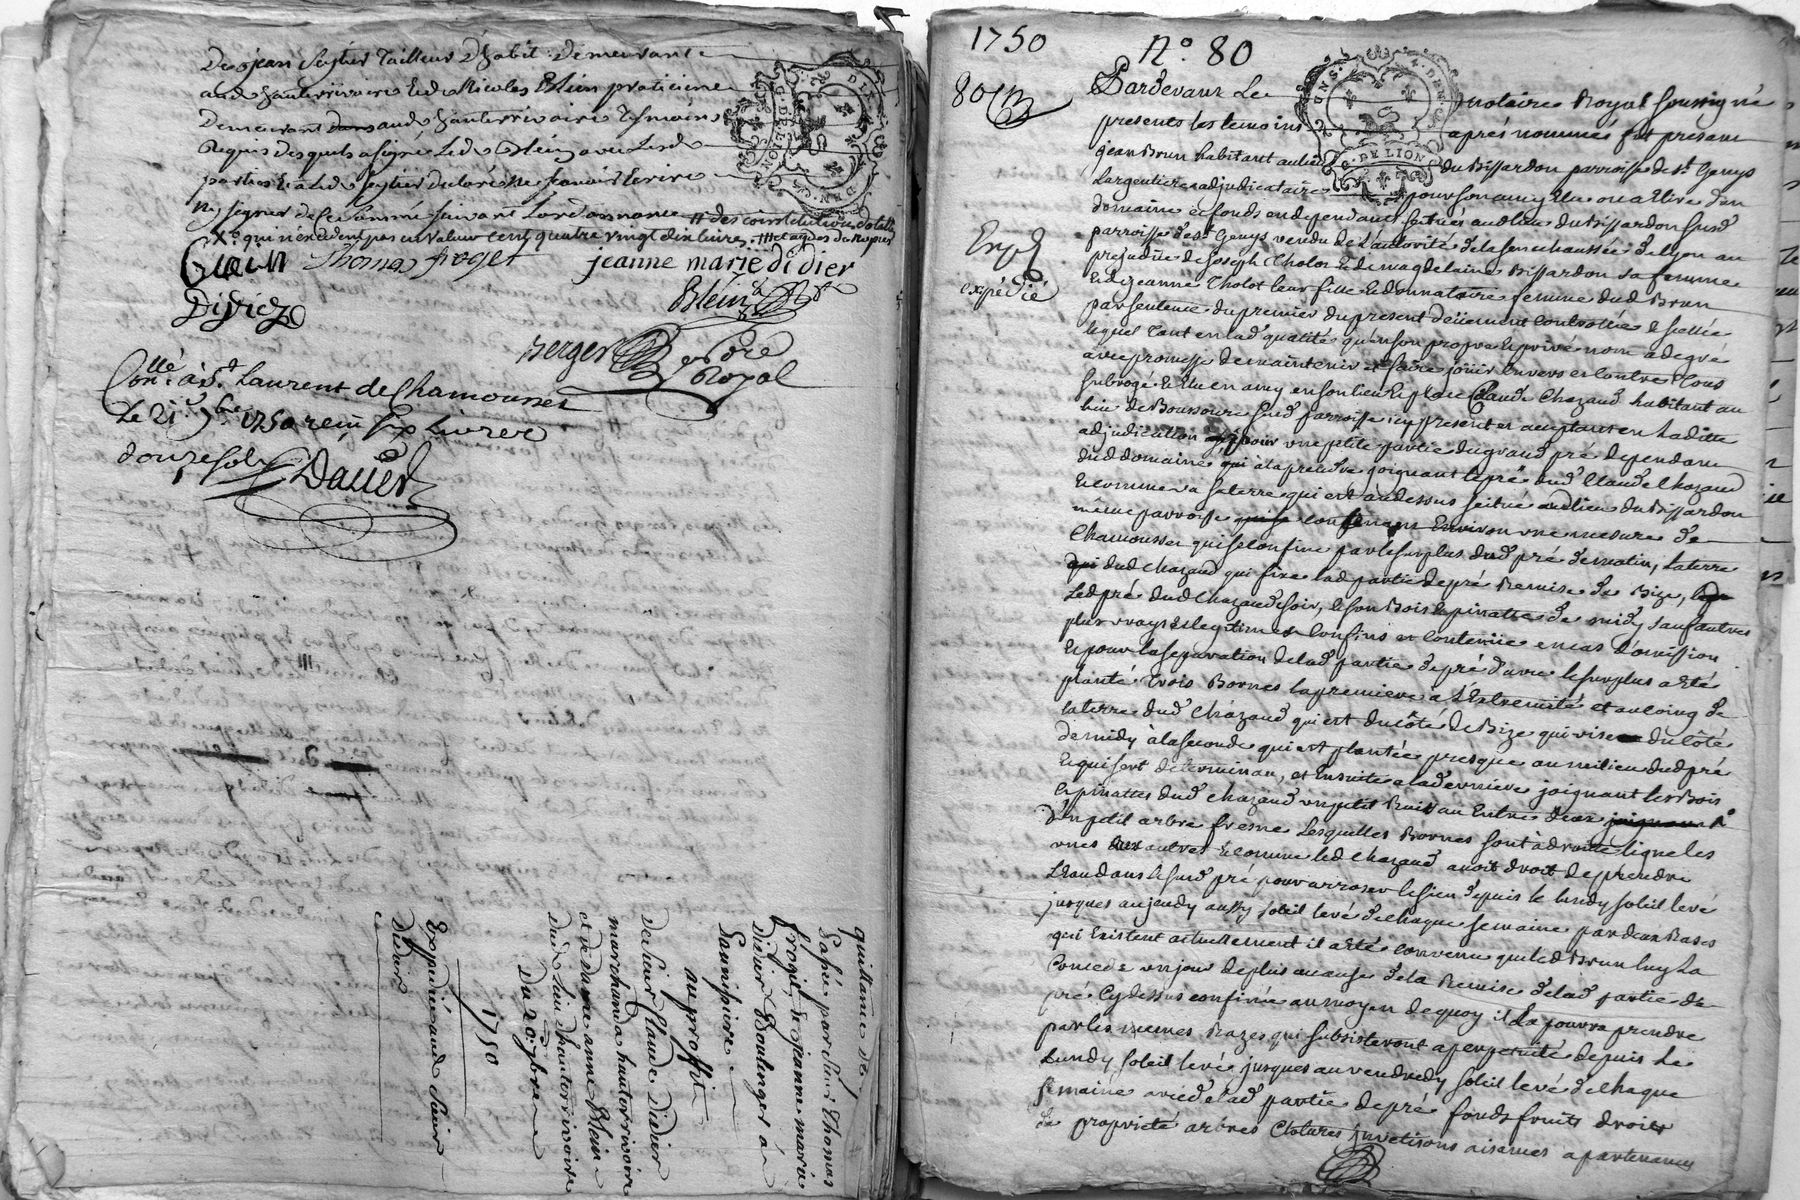 De jean Seytier tailleur d'habit demeurant
aud hauterivoire Et de Nicolas Blein praticien
Demeurant aud hauterivoire Tesmoins
Requis desquels a signé Led Blein avec Lesd
parties Et a Led Seytier declaré ne scavoir Ecrire
Ny signer de ce sommé suivant Lordonnance # des constitutions dotalles
X° qui n'excedent pas en valeur cent quatre vingt dix livres
Thomas froget
jeanne marie didier
Blein
Didiez
berger
Nore Royal
Conllé à St Laurent de Chamousset
Le 21e 9bre 1750 receu six Livres
douze sols
Dauer
quittance de
passé par Sieur Thomas
froget & jeanne marie
Didier Boulanger à
Saimpiire
au proffit
De sieur Claude Didier
marchand a hauterivoire
et de dame anne Blein
dud lieu d'hauterivoire
Du 20e 9bre
1750
Expedié aud Sieur
Didier
1750
N° 80
80
Expd
expédié
G. DE LION
Pardevant Le notaire Royal soussigné
presents les temoins aprés nommés fut present
jean Brun habitant au lieu du Bissardon parroisse de St Genys
Largentiere adjudicataire pour son amy Elu ou a Elire d'un
domaine & fonds en dependants scitués audt lieu du Bissardon susd
parroisse de St Genys vendu de L'autorité de la senechaussée de Lyon au
prejudice de Joseph Cholot & de magdelaine Bissardon sa femme
Et de jeanne Cholot leur fille & donnatoire femme dud Brun
par sentence du premier du present deüement controllée & scellée
lequel tant en lad qualité qu'en son propre & privé nom a de gré
avec promesse de maintenir et faire jouir Envers et Contre tous
subrogé & Elu en amy en son lieu & place Claude Chazaud habitant au
lieu de Boussoure susd parroisse icy present et acceptant en laditte
adjudication pour une petite partie du grand pré dependant
dud domaine qui a la preuve joignant le pré dud Claude Chazaud
Et comme sa terre qui est au dessus scitué audt lieu du Bissardon
même parroisse contenant Environ une mesure de
Chamousset qui se confine par le surplus dud pré de matin, la terre
dud Chazaud qui fixe lad partie de pré Remise de Bize,
Led pré dud Chazaud de soir, & son Bois & pinatte de midy sauf autres
plus vrays & legitimes Confins et Contenüe en cas d'omission
Et pour la separation de lad partie de pré d'avec le surplus a Eté
planté trois Bornes la premiere a L'Extremité et au Coing de
la terre dud Chazaud qui est du côté de Bize qui vise du Côté
de midy à la seconde qui est plantée presque au milieu dud pré
Et qui sert de terminan, et Ensuite a la derniere joignant les Bois
& pinattes dud Chazaud un petit Ruisseau Entre deux
d'un petit arbre fresne Lesquelles Bornes sont à droitte ligne les
unes aux autres Et comme led Chazaud avoit droit de prendre
L'Eau dans le susd pré pour arroser le sien depuis le lundy soleil levé
jusques au jeudy aussy soleil levé de chaque semaine par deux Rases
qui Existent actuellement il a Eté convenu que led Brun luy La
Concede un jour de plus a cause de la Remise de lad partie de
pré Cy dessus confinée au moyen de quoy il La pourra prendre
par les mêmes Razes qui subsisteront a perpetuité depuis Le
Lundy soleil levé jusques au vendredy soleil levé de chaque
semaine avec de lad partie de pré fonds fruits droits
de proprieté arbres Clotures investisons aisances apartenances